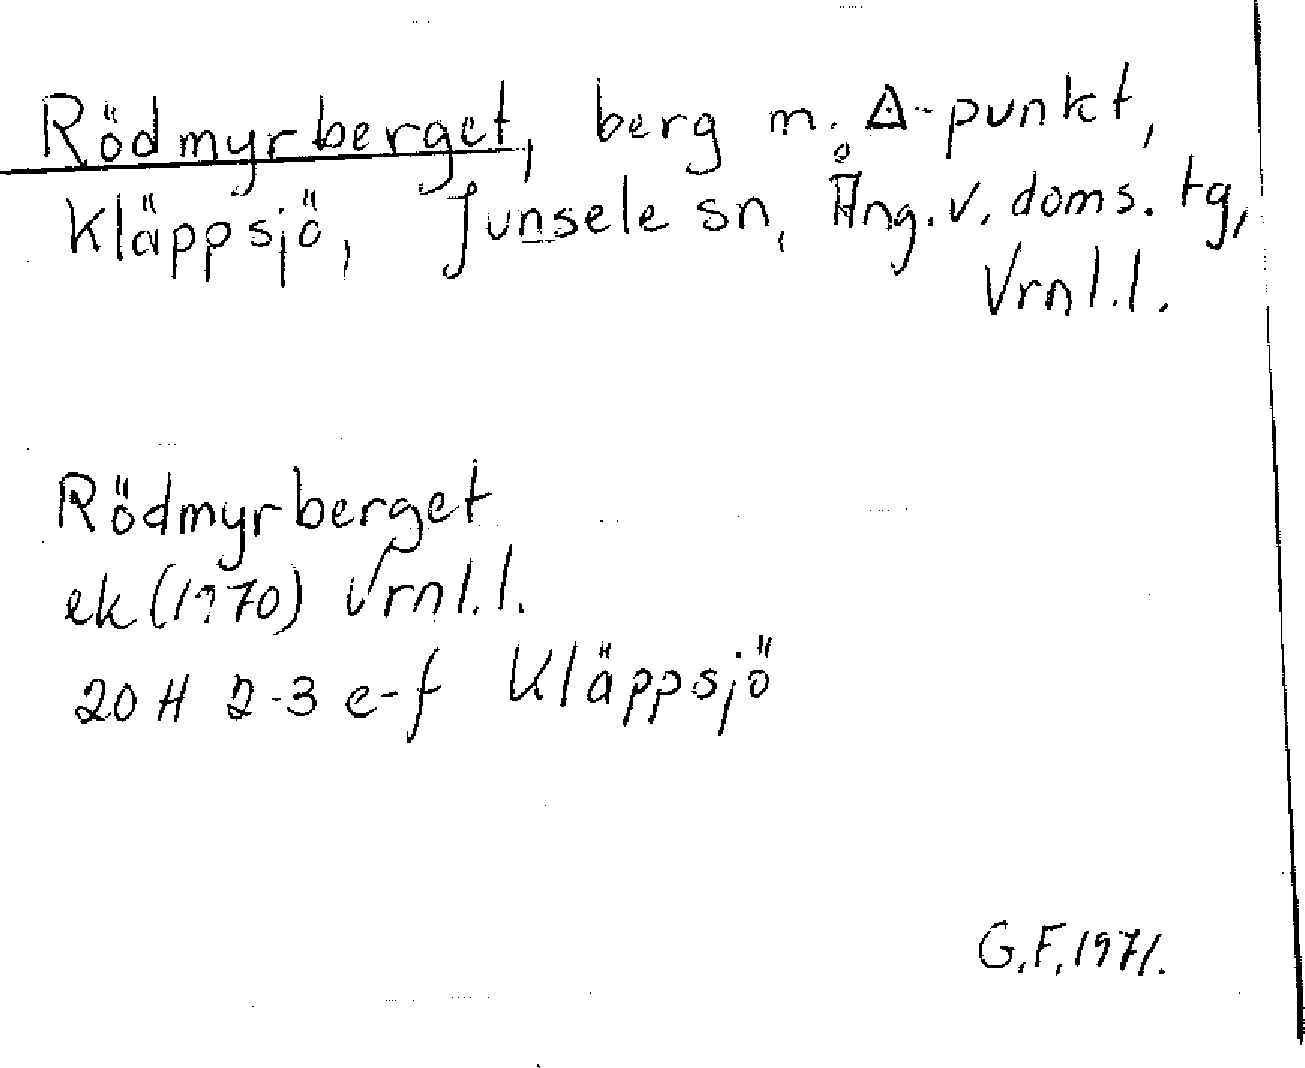 Rödmyrberget, berg m. Δ-punkt,
Kläppsjö, Junsele sn, Ång. v. doms. tg,
Vrnl.l.
Rödmyrberget
ek (1970) Vrnl.l.
20 H 2-3 e-f Kläppsjö
G.F. 1971.